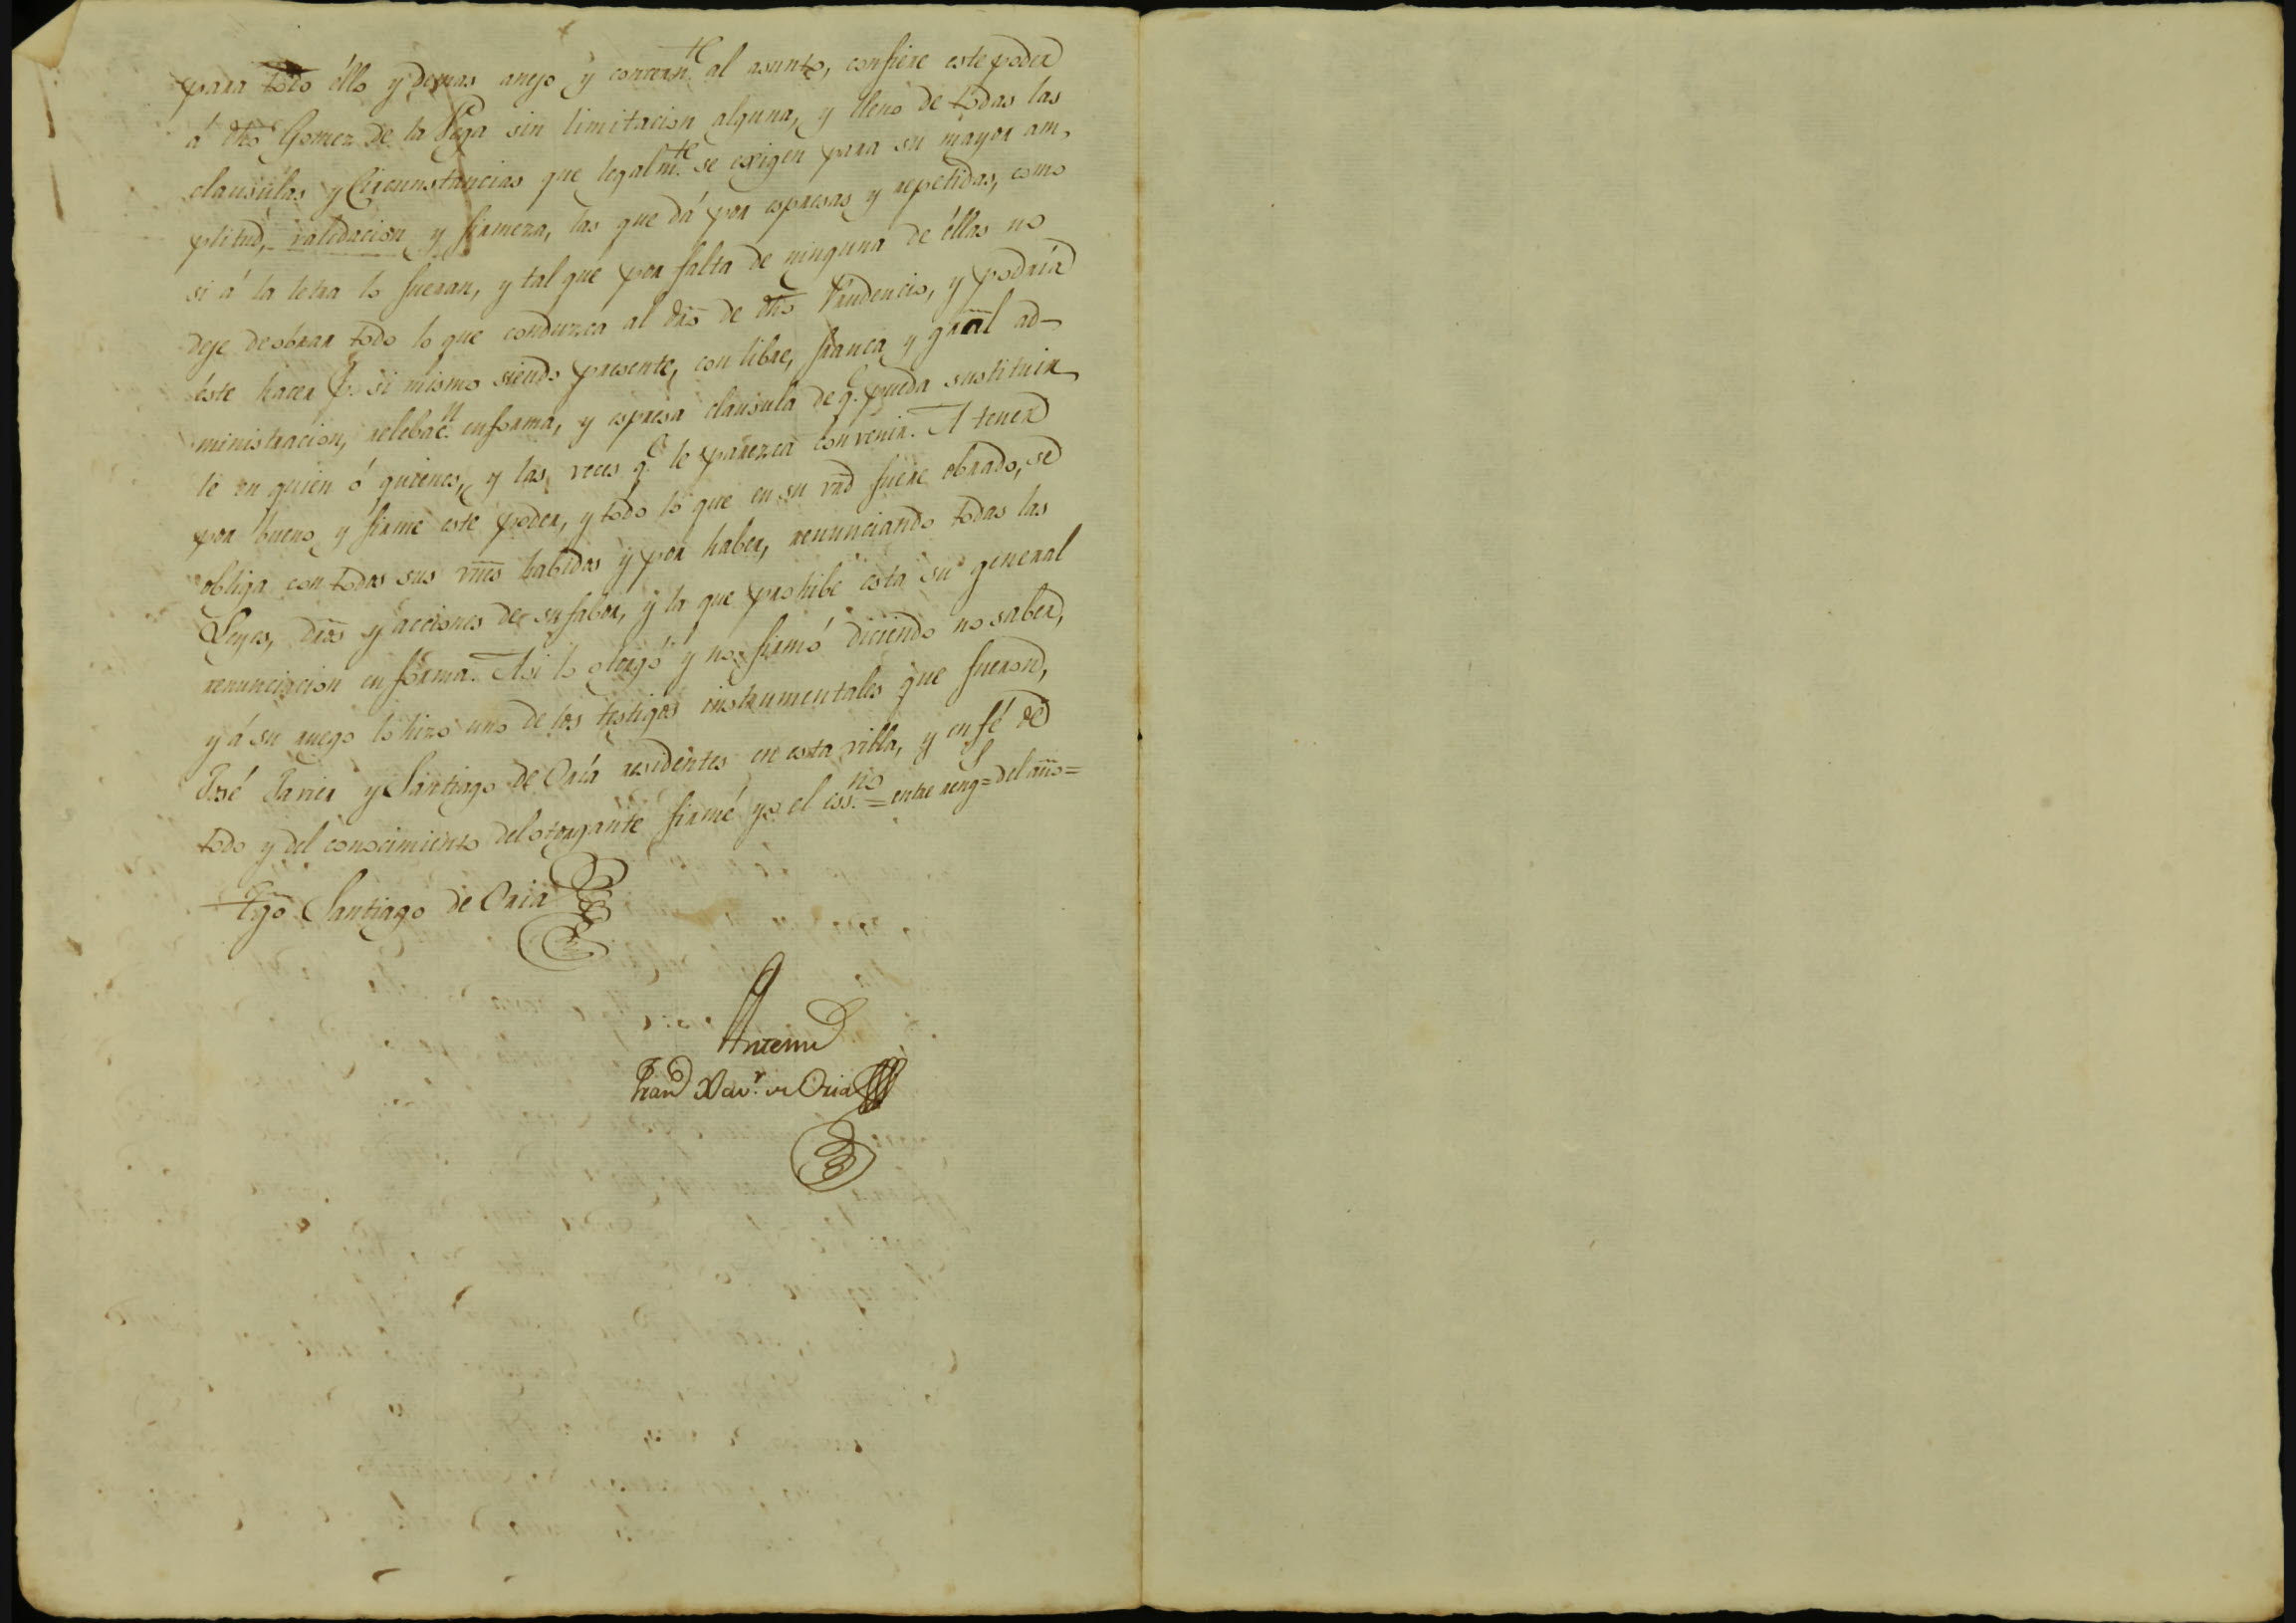 para todo éllo y demas anejo y concern.te al asunto, confiere este poder
á dho Gomez de la Vega sin limitacion alguna, y lleno de todas las
clausulas y Circunstancias que legalm.te se exigen para su mayor am-
plitud, validacion y firmeza, las que dá por espresas y repetidas, como
si á la letra lo fueran, y tal que por falta de ninguna de éllas no
deje de obrar todo lo que conduzca al dro de dho Prudencio, y podría
este hacer p.r si mismo siendo presente, con libre, franca y gral ad-
ministracion, relebac.n en forma, y espresa clausula de q.e pueda sustituir
le en quien ó quienes, y las veces q.e le parezca convenir. A tener
por bueno y firme este poder, y todo lo que en su vrd fuere obrado, se
obliga con todos sus vnes habidos y por haber, renunciando todas las
Leyes, dros y acciones de su fabor, y la que prohibe esta su general
renunciacion en forma. Asi lo otorgó y no firmó diciendo no saber,
y á su ruego lo hizo uno de los testigos instrumentales que fueron,
José Javier y Santiago de Oria residentes en esta villa, y en fé de
todo y del conocimiento del otorgante firmé yo el ess.no = entre reng.s = del año =
Tgo Santiago de Oria
Antemi
Fran.co Xav.r de Oria